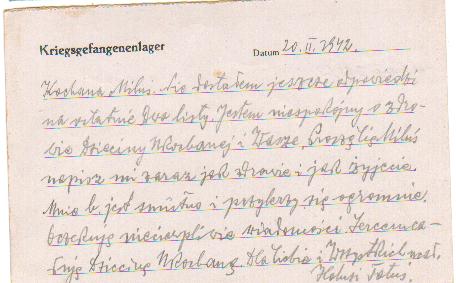 Kriegsgefangenenlager
Datum 20. II. 1942.
Kochana Miluś. Nie dostałem jeszcze odpowiedzi
na ostatnie dwa listy. Jestem niespokojny o zdro-
wie Dzieciny Ukochanej i Wasze. Proszę Cię Miluś
napisz mi zaraz jak zdrowie i jak żyjecie.
Mnie b. jest smutno i przykrzy się ogromnie.
Oczekuję niecierpliwie wiadomości. Sercem ca-
łuję Dziecinę Ukochaną. Dla Ciebie i Wszystkich
Tatuś.